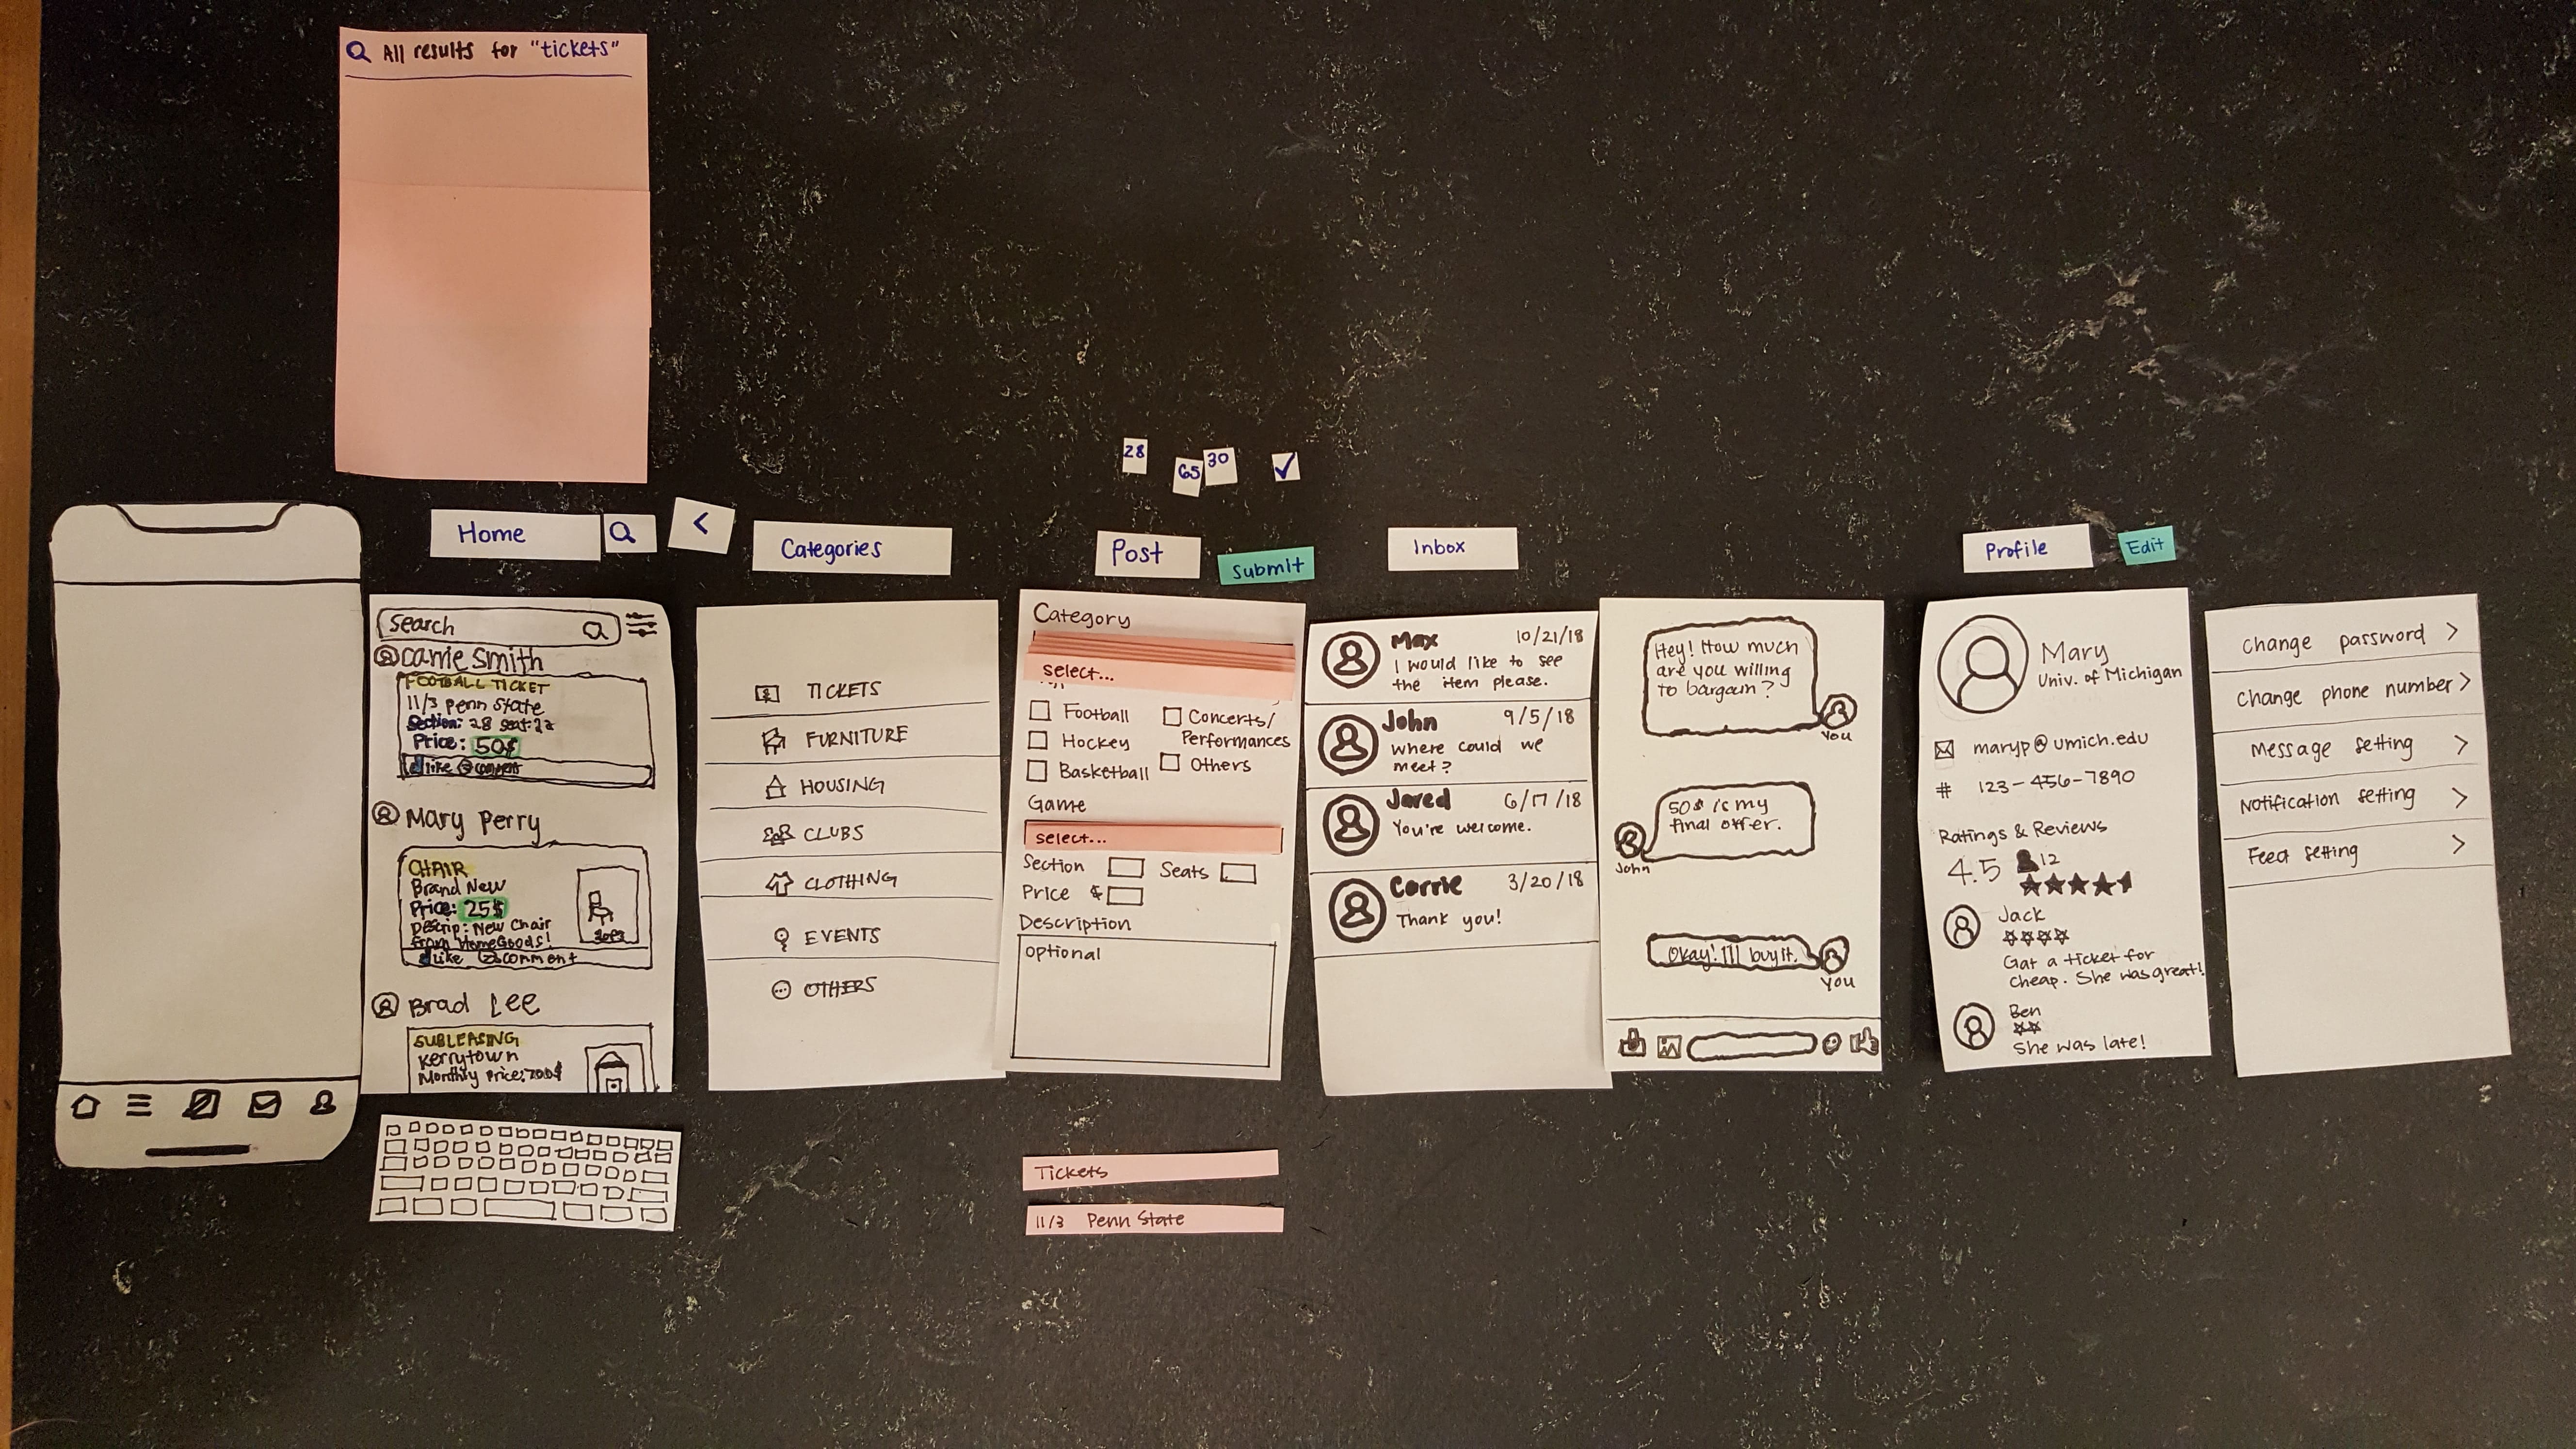 All results for "tickets"
28
65
30
Home
<
Categories
Post
Submit
Inbox
Profile
Edit
Search
Carrie Smith
FOOTBALL TICKET
11/3 Penn State
Section: 28 seat: 22
Price: 50$
like comment
Mary Perry
CHAIR
Brand New
Price: 25$
Descrip: New Chair
From HomeGoods!
like comment
Brad Lee
SUBLEASING
Kerrytown
Monthly Price: 700$
TICKETS
FURNITURE
HOUSING
CLUBS
CLOTHING
EVENTS
OTHERS
Category
select...
Football
Concerts/
Performances
Hockey
Basketball
Others
Game
select...
Section
Seats
Price $
Description
optional
Max 10/21/18
I would like to see
the item please.
John 9/5/18
Where could we
meet?
Jared 6/17/18
You're welcome.
Carrie 3/20/18
Thank you!
Hey! How much
are you willing
to bargain?
You
50$ is my
final offer.
John
Okay! I'll buy it.
You
Mary
Univ. of Michigan
maryp@umich.edu
# 123-456-7890
Ratings & Reviews
4.5 12
Jack
Got a ticket for
cheap. She was great!
Ben
She was late!
Change password >
Change phone number >
Message setting >
Notification setting >
Feed setting >
Tickets
11/3 Penn State